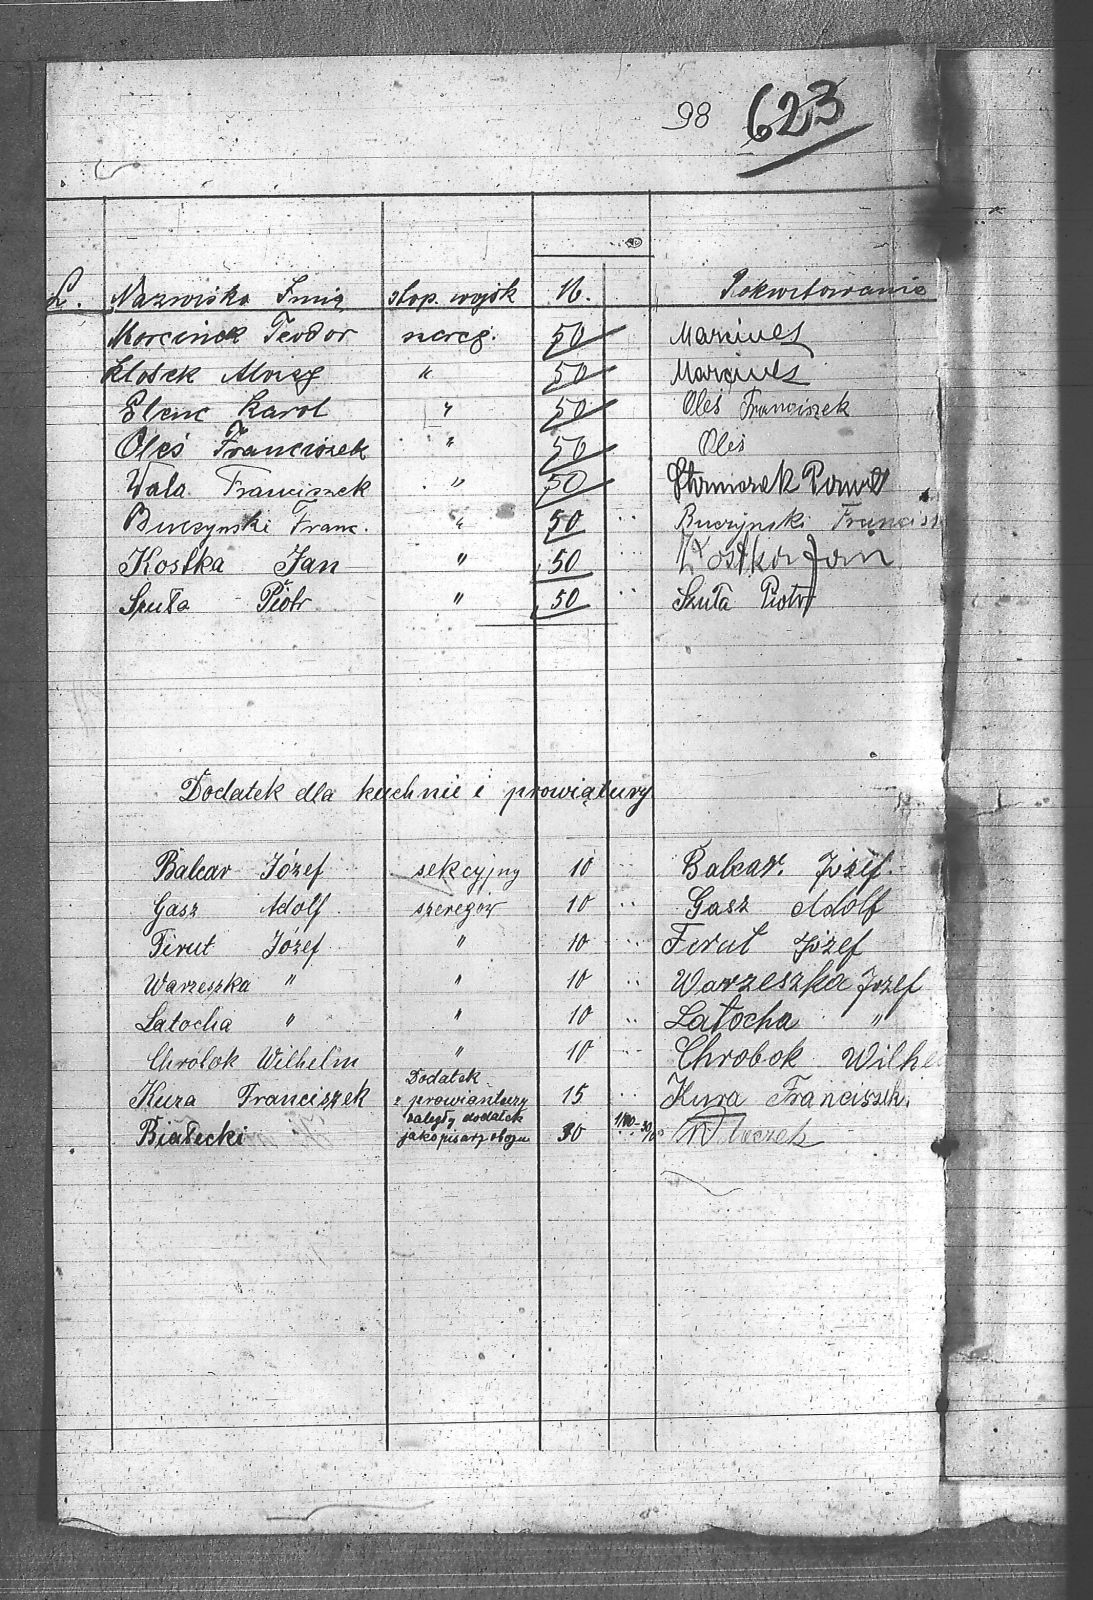 98 623
L. Nazwisko Imię stop. wojsk M. Pokwitowanie
Morcinek Teodor szereg. 50 Marcinek
Klosek Alojzy " 50 Marcinek
Elenc Karol " 50 Oleś Franciszek
Oleś Franciszek " 50 Oleś
Wala Franciszek " 50
Buczynski Franc. " 50 Buczynski Francisz
Kostka Jan " 50 Kostka Jan
Szuła Piotr " 50 Szuła Piotr
Dodatek dla kuchnie i prowiątury
Balcar Józef sekcyjny 10 Balcar. Józef.
Gasz Adolf szeregow 10 Gasz Adolf
Firut Józef " 10 Firut Józef
Warzeszka " " 10 Warzeszka Józef
Latocha " " 10 Latocha "
Chrobok Wilhelm " 10 Chrobok Wilhe
Kura Franciszek Dodatek prowiantury 15 Kura Franciszek.
Białecki zaległy dodatek jako pisarz obozu 30